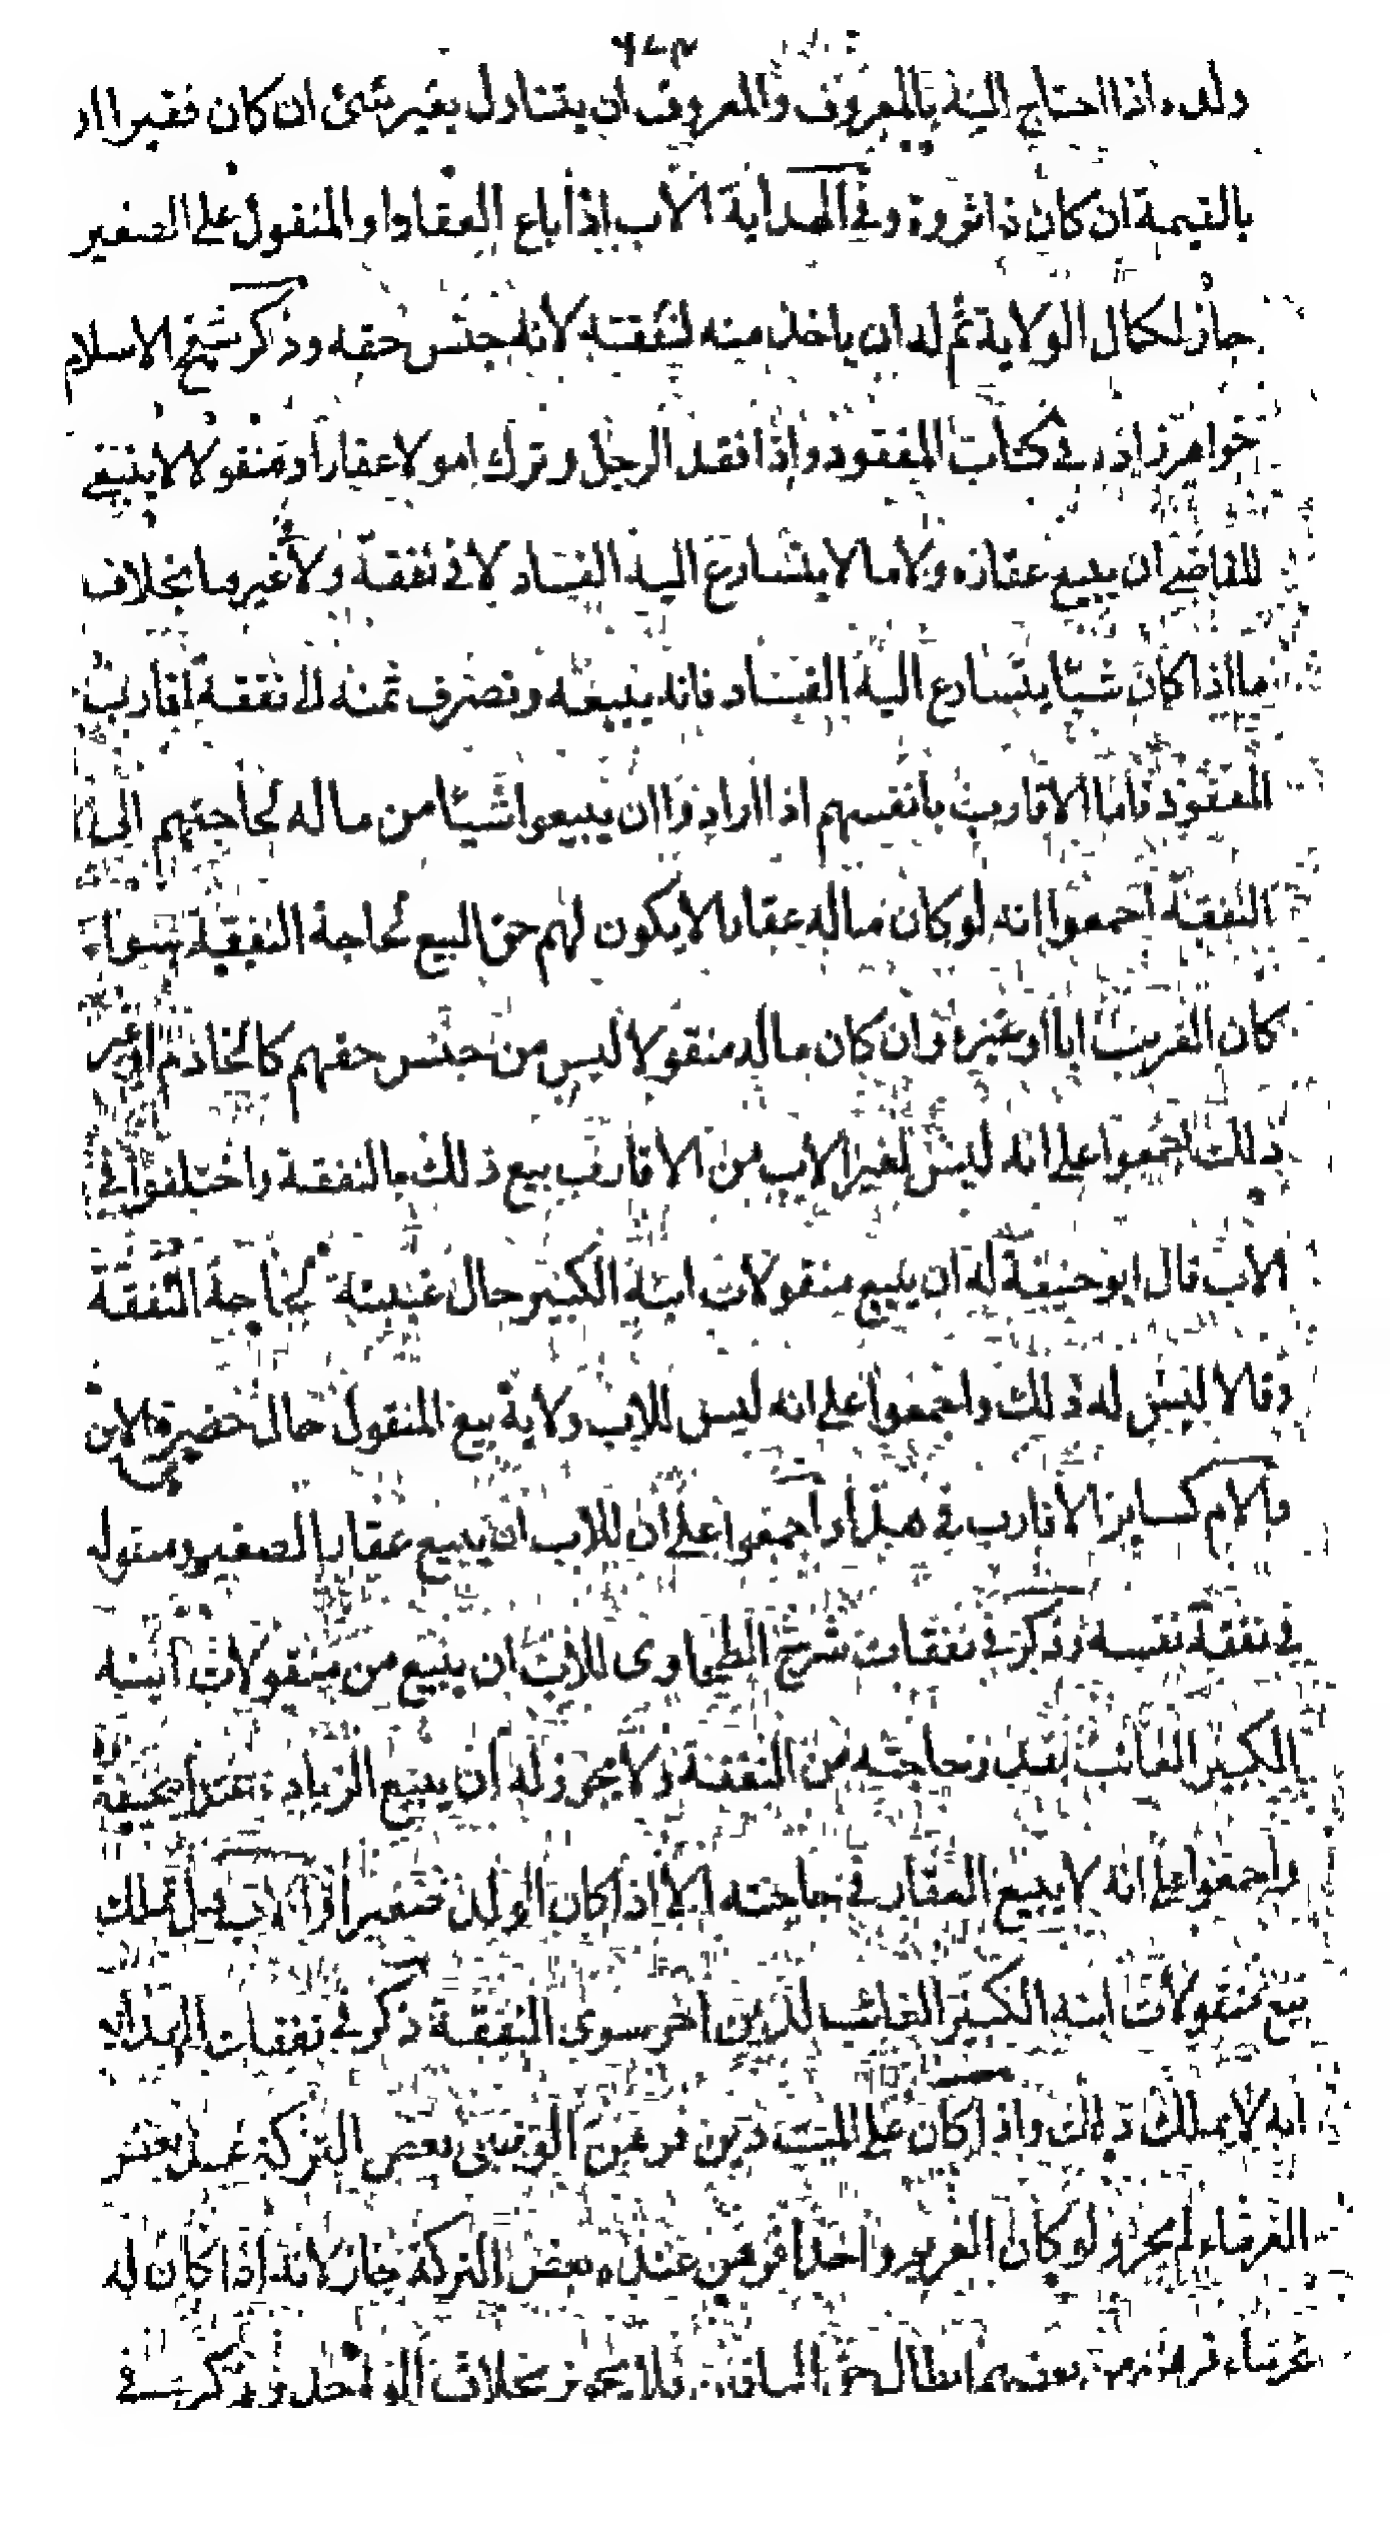 ولده اذا احتاج اليه بالمعروف والمعروف ان يتناول بغير شئ ان كان فقيرا او
بالقيمة ان كان ذا ثروة وفي الهداية الاب اذا باع العقار او المنقول على الصغير
جاز لكمال الولاية ثم له ان ياخذ منه لنفقته لانه جنس حقه وذكر شيخ الاسلام
خواهر زاده في كتاب المفقود واذا فقد الرجل وترك اموالا عقارا او منقولا لا ينبغي
للقاضي ان يبيع عقاره ولا ما لا يتسارع اليه الفساد لا في نفقة ولا غيرها بخلاف
ما اذا كان شيئا يتسارع اليه الفساد فانه يبيعه وتصرف ثمنه لا نفقة اقارب
المفقود فاما الاقارب بانفسهم اذا ارادوا ان يبيعوا شيئا من ماله لحاجتهم الى
النفقة اجمعوا انه لو كان ماله عقارا لا يكون لهم حق البيع لحاجة النفقة سواء
كان القريب ابا او غيره وان كان ماله منقولا ليس من جنس حقهم كالخادم او غير
ذلك اجمعوا على انه ليس لغير الاب من الاقارب بيع ذلك بالنفقة واختلفوا في
الاب قال ابو حنيفة له ان يبيع منقولات ابنه الكبير حال غيبته لحاجة النفقة
وقالا ليس له ذلك واجمعوا على انه ليس للاب ولاية بيع المنقول حال حضرة الابن
والام كساير الاقارب في هذا واجمعوا على ان للاب ان يبيع عقار الصغير ومنقوله
في نفقة نفسه وذكر في نفقات شرح الطحاوى للاب ان يبيع من منقولات ابنه
الكبير الغائب بقدر حاجته من النفقة ولا يجوز له ان يبيع الزيادة
واجمعوا على انه لا يبيع العقار في حاجته الا اذا كان الولد صغيرا والاب هل يملك
بيع منقولات ابنه الكبير الغائب لدين اخر سوى النفقة ذكر في نفقات الهداية
انه لا يملك ذلك واذا كان على الميت دين فرهن الوصى بعض التركة عند بعض
الغرماء لم يجز ولو كان الغريم واحدا فرهن عنده بعض التركة جاز لانه اذا كان له
غرماء بعضهم ابطال حق الباقين فلا يجوز بخلاف الواحد وذكر في